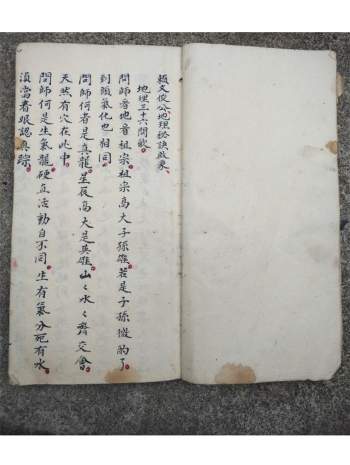 頼文俊公地理秘訣啟蒙
地理三十六問歌
問師地祖宗祖宗高大子孫雄若是子孫微了
到頭氣化也相同
問師何者是真龍星辰高大是英雄山々水々齊交會
天然有穴在此中
問師何是生氣龍硬直活動自不同生有氣分死有水
須當着眼認真踪